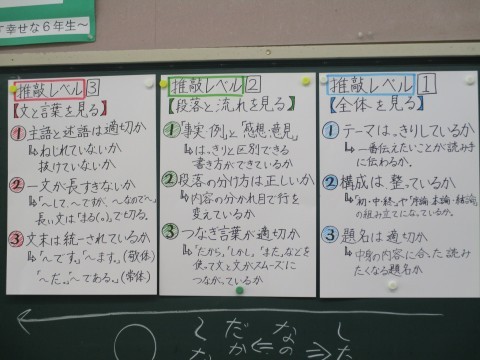 す幸せな6年生～
推敲レベル 1
【全体を見る】
① テーマは、はっきりしているか
↳一番伝えたいことが読み手
に伝わるか。
② 構成は整っているか
↳「初・中・終」や「序論・本論・結論」
の組み立てになっているか。
③ 題名は適切か
↳中身の内容に合った読み
たくなる題名か
推敲レベル ②
【段落と流れを見る】
①「事実・例」と「感想・意見」
↳はっきりと区別できる
書き方ができているか
②段落の分け方は正しいか
↳内容の分かれ目で行を
変えているか
③つなぎ言葉が適切か
↳「だから」「しかし」「また」などを
使って文と文がスムーズに
つながっているか
推敲レベル ③
【文と言葉を見る】
①主語と述語は適切か
↳ねじれていないか
抜けていないか
②一文が長すぎないか
↳「～して、～ですが、～なので」
長い文は「まる(。)」で切る。
③文末は統一されているか
↳「～です。」「～ます。」(敬体)
「～だ。」「～である。」(常体)
した
なの
だか